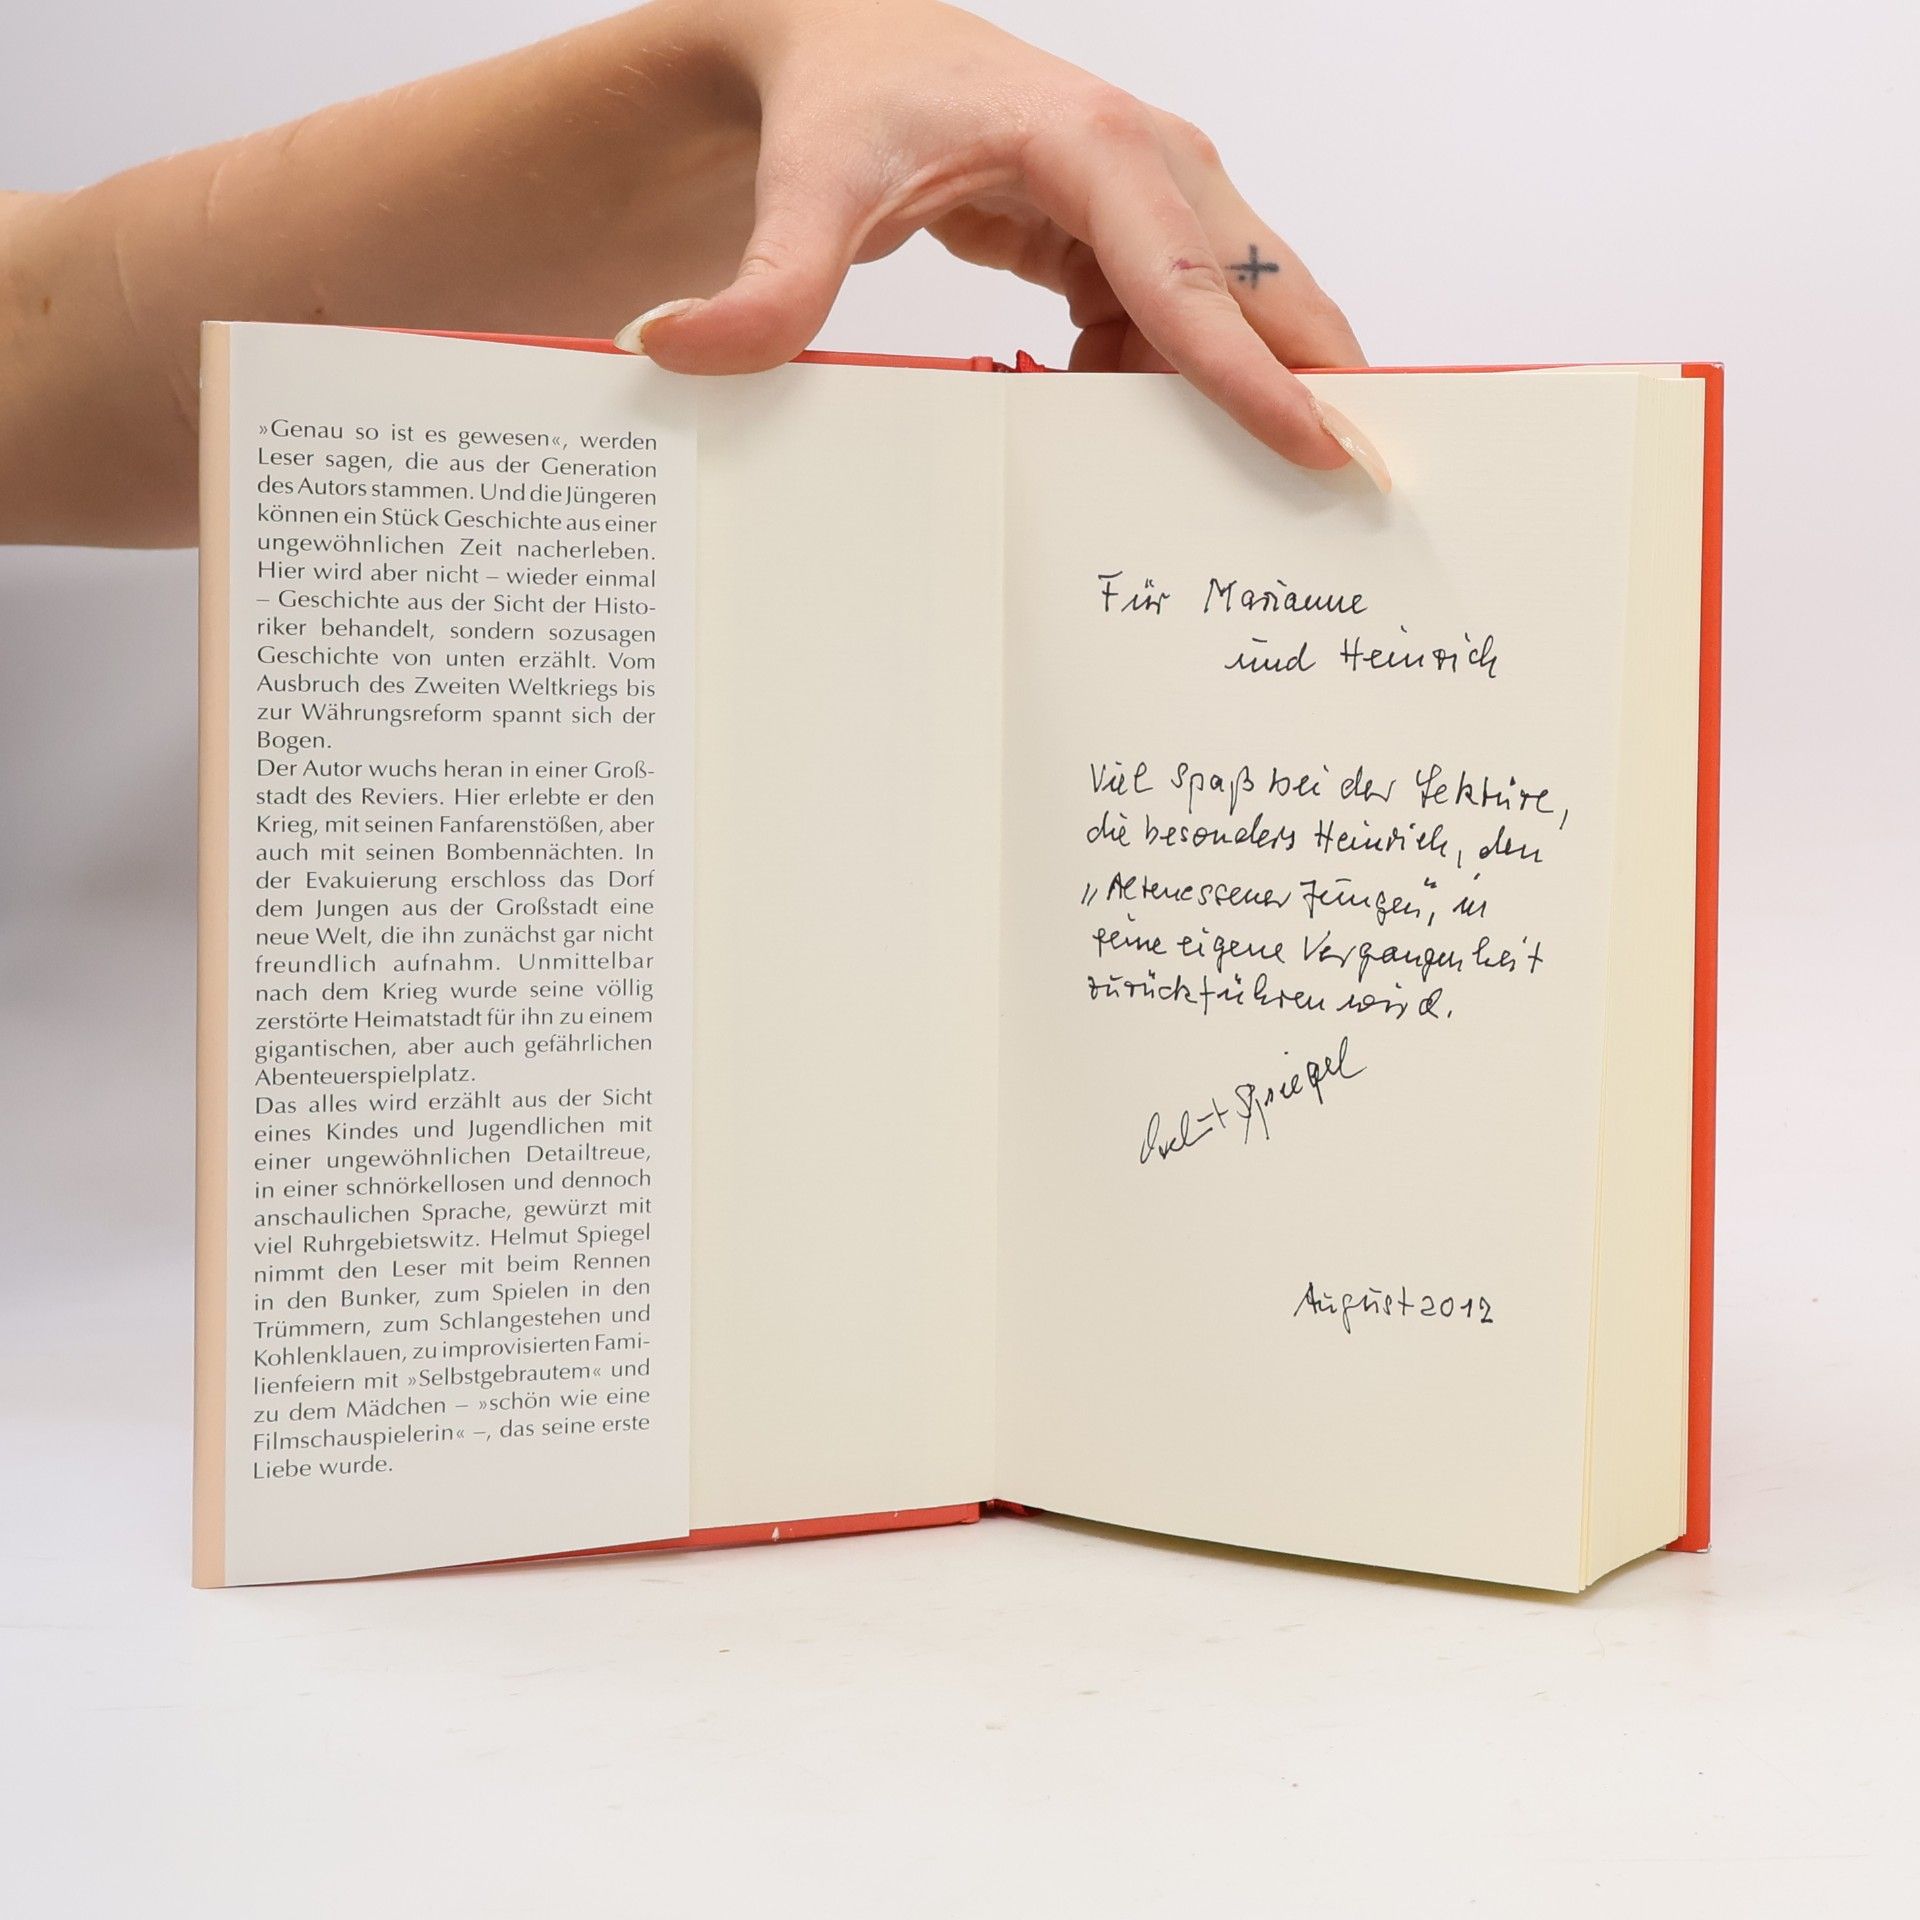 »Genau so ist es gewesen«, werden
Leser sagen, die aus der Generation
des Autors stammen. Und die Jüngeren
können ein Stück Geschichte aus einer
ungewöhnlichen Zeit nacherleben.
Hier wird aber nicht – wieder einmal
– Geschichte aus der Sicht der Histo-
riker behandelt, sondern sozusagen
Geschichte von unten erzählt. Vom
Ausbruch des Zweiten Weltkriegs bis
zur Währungsreform spannt sich der
Bogen.
Der Autor wuchs heran in einer Groß-
stadt des Reviers. Hier erlebte er den
Krieg, mit seinen Fanfarenstößen, aber
auch mit seinen Bombennächten. In
der Evakuierung erschloss das Dorf
dem Jungen aus der Großstadt eine
neue Welt, die ihn zunächst gar nicht
freundlich aufnahm. Unmittelbar
nach dem Krieg wurde seine völlig
zerstörte Heimatstadt für ihn zu einem
gigantischen, aber auch gefährlichen
Abenteuerspielplatz.
Das alles wird erzählt aus der Sicht
eines Kindes und Jugendlichen mit
einer ungewöhnlichen Detailtreue,
in einer schnörkellosen und dennoch
anschaulichen Sprache, gewürzt mit
viel Ruhrgebietswitz. Helmut Spiegel
nimmt den Leser mit beim Rennen
in den Bunker, zum Spielen in den
Trümmern, zum Schlangestehen und
Kohlenklauen, zu improvisierten Fami-
lienfeiern mit »Selbstgebrautem« und
zu dem Mädchen – »schön wie eine
Filmschauspielerin« –, das seine erste
Liebe wurde.
Für Marianne
und Heinrich
Viel Spaß bei der Lektüre,
die besonders Heinrich, den
„Altenessener Jungen“, in
seine eigene Vergangenheit
zurückführen wird.
Helmut Spiegel
August 2012